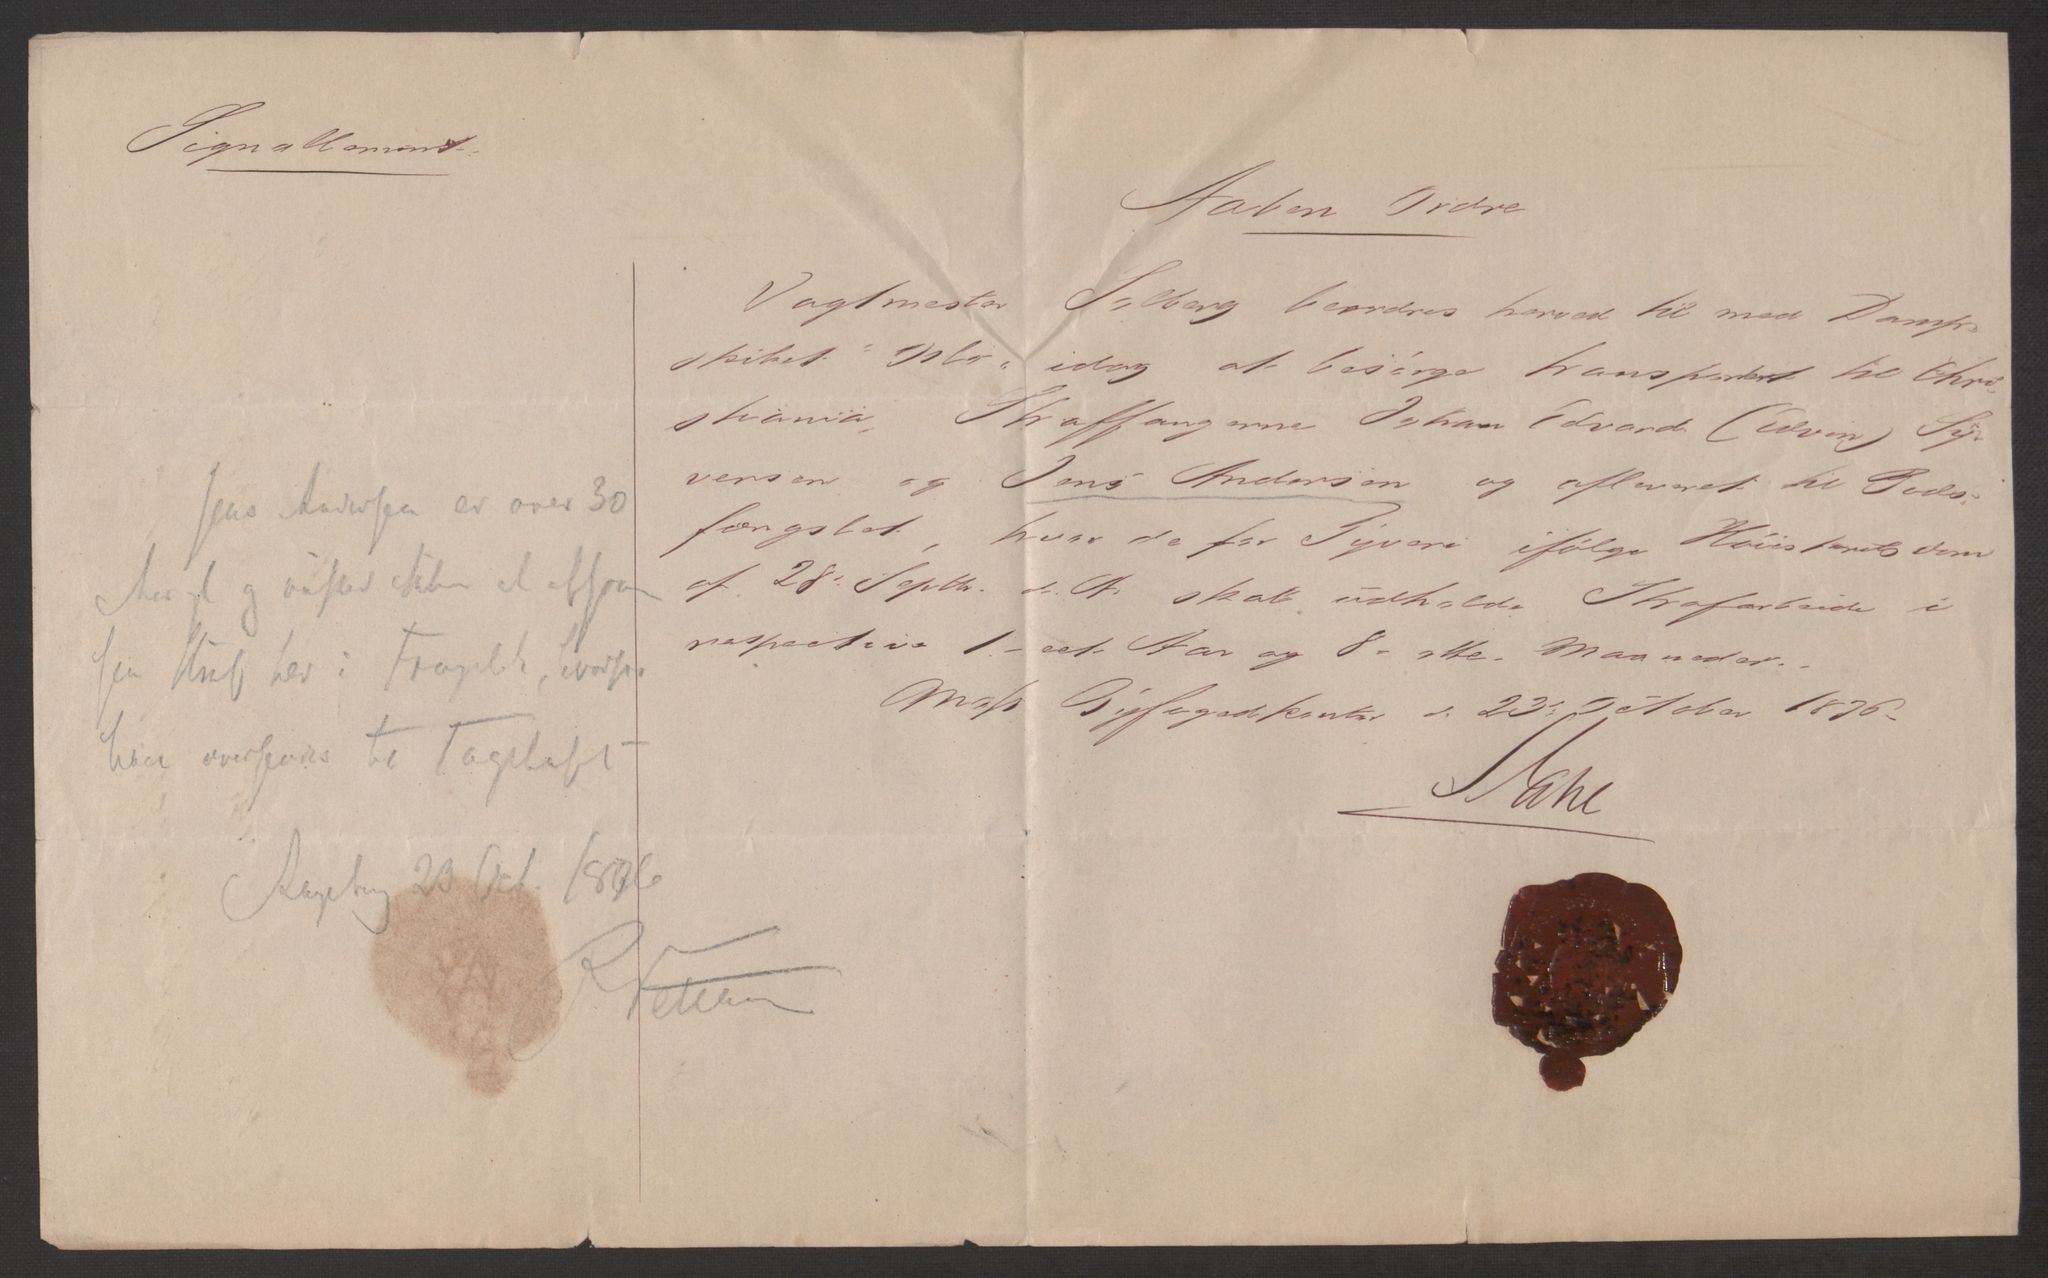 Signallement.
Aaben Ordre
Vagtmester Solberg beordres herved til med Damp-
skibet "Oslo" idag at besörge transporteret til Chri-
stiania, Straffangerne Johan Edvard (Edvin) Sy-
versen og Jens Andersen og afleveret til Bods-
fængslet, hvor de for Tyveri ifölge Höiesteretsdom
af 28. Septbr. d. A. skal udholde Strafarbeide i
respective 1 - eet Aar og 8 - otte Maaneder.
Moss Byfogedkontor d. 23. October 1876.
Stahl
Jens Andersen er over 30
Aar gl og önsker at afsone
sin Straf her i, hvorfor
han overföres til
23 Oct. 1876
R Petersen